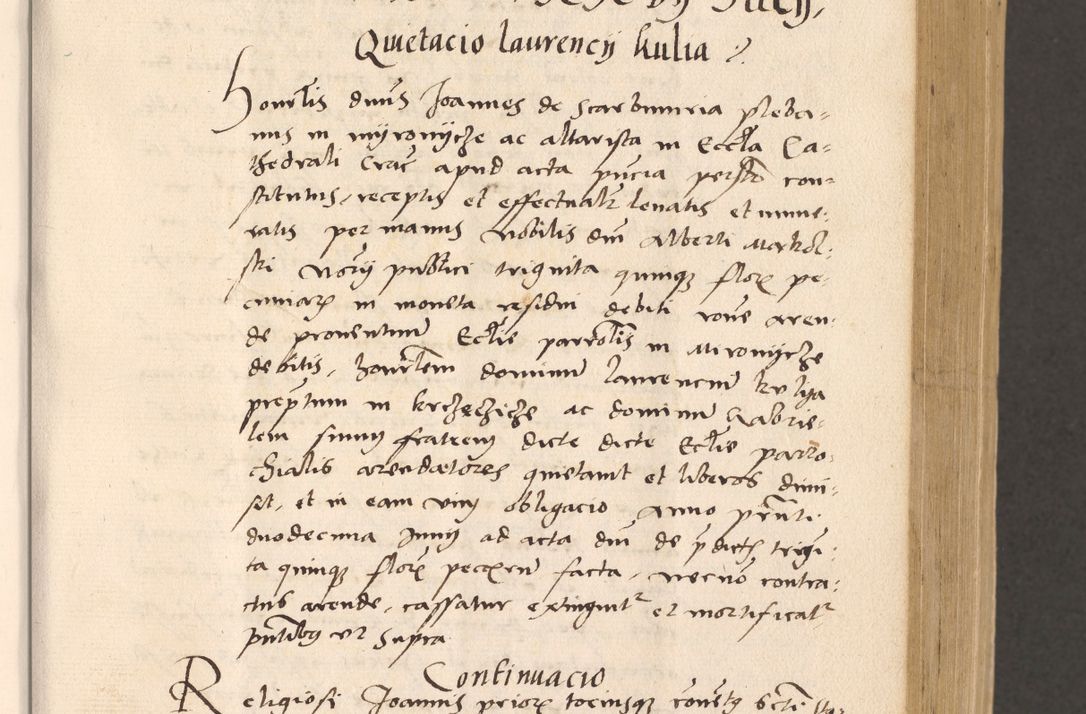 Quietacio laurencij kulia
Honorlis dnus Joannes de Scarbimiria pleba-
nus in myronijcze ac altarista in Eccla Ca-
thedrali Crac apud acta pncia persr con-
stitutus, receptis et effectualr leuatis et nume-
ratis per manus Nobilis dni Alberti Markol-
ski Norij publici triginta quinq flor pe-
cuniar in moneta residui debiti rone aren-
de prouentuum Ecclie parrolis in Mironijcze
debitis, honorlem dominum laurencium kuliga
preptum in krcz ac dominum Gabrie-
lem suum fratrem dicte dicte Ecclie parro-
chialis arendatores quietauit et liberos dimi-
sit, et in eam vim obligacio Anno prnti
duodecima Junij ad acta dni de pdict trigi-
ta quinq flor pecxrum facta, necno contra-
ctus arende, cassatur extinguitr et mortificatr
pntibq vt supra
Continuacio
Religiosi Joannis prior tociusq conuetq